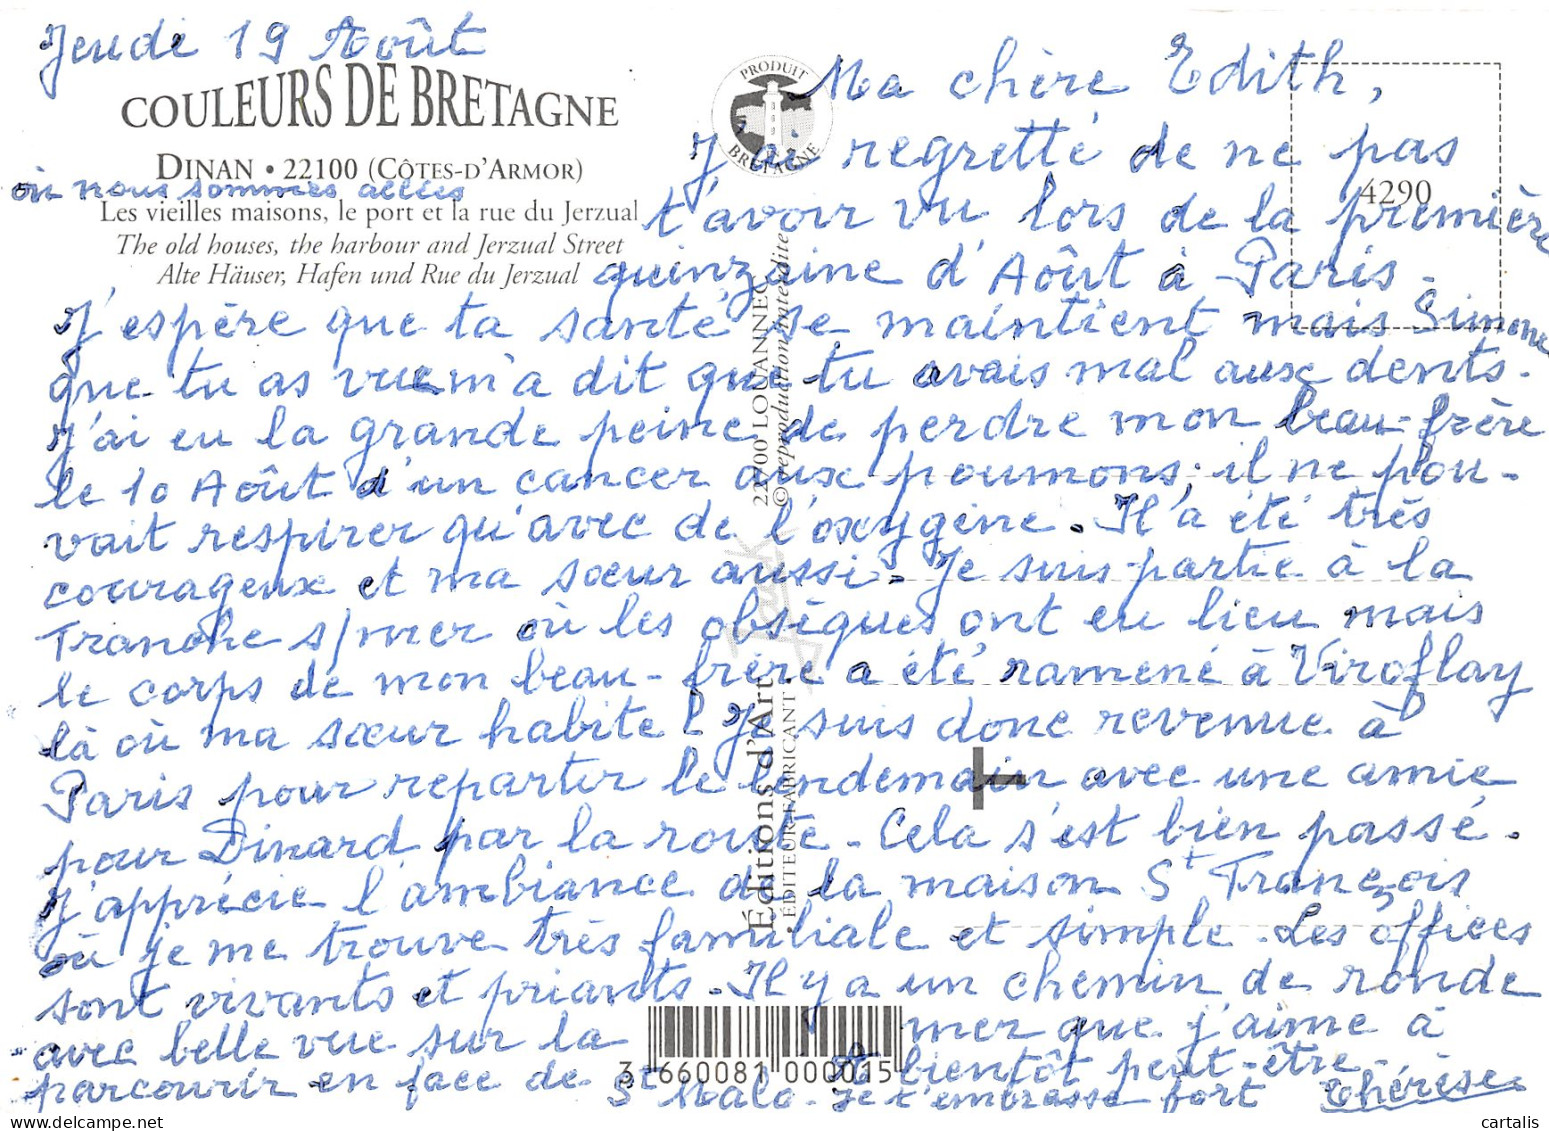 Jeudi 19 Août
COULEURS DE BRETAGNE
DINAN • 22100 (CÔTES-D'ARMOR)
où nous sommes allées
Les vieilles maisons, le port et la rue du Jerzual
The old houses, the harbour and Jerzual Street
Alte Häuser, Hafen und Rue du Jerzual
PRODUIT
BRETAGNE
4290
Ma chère Edith,
J'ai regretté de ne pas
t'avoir vu lors de la première
quinzaine d'Août à Paris.
J'espère que ta santé se maintient mais Simone
que tu as vue m'a dit que tu avais mal aux dents.
J'ai eu la grande peine de perdre mon beau-frère
le 10 Août d'un cancer aux poumons; il ne pou-
vait respirer qu'avec de l'oxygène. Il a été très
courageux et ma sœur aussi. Je suis partie à la
Tranche s/mer où les obsèques ont eu lieu mais
le corps de mon beau-frère a été ramené à Viroflay
là où ma sœur habite! Je suis donc revenue à
Paris pour repartir le lendemain avec une amie
pour Dinard par la route. Cela s'est bien passé.
J'apprécie l'ambiance de la maison St François
où je me trouve très familiale et simple. Les offices
sont vivants et priants. Il y a un chemin de ronde
avec belle vue sur la mer que j'aime à
parcourir en face de St Malo. A bientôt peut-être.
Je t'embrasse fort Thérèse
22700 LOUANNEC
© reproduction interdite
Jack
Éditions d'Art
• ÉDITEUR FABRICANT •
3 660081 000015
cartalis